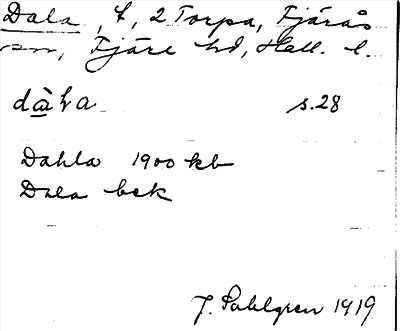 Dala, t, 2 Torpa, Fjärås
sn, Fjäre hd, Hall. l.
dàla s.28
Dahla 1900 kb
Dala bck
J. Sahlgren 1919